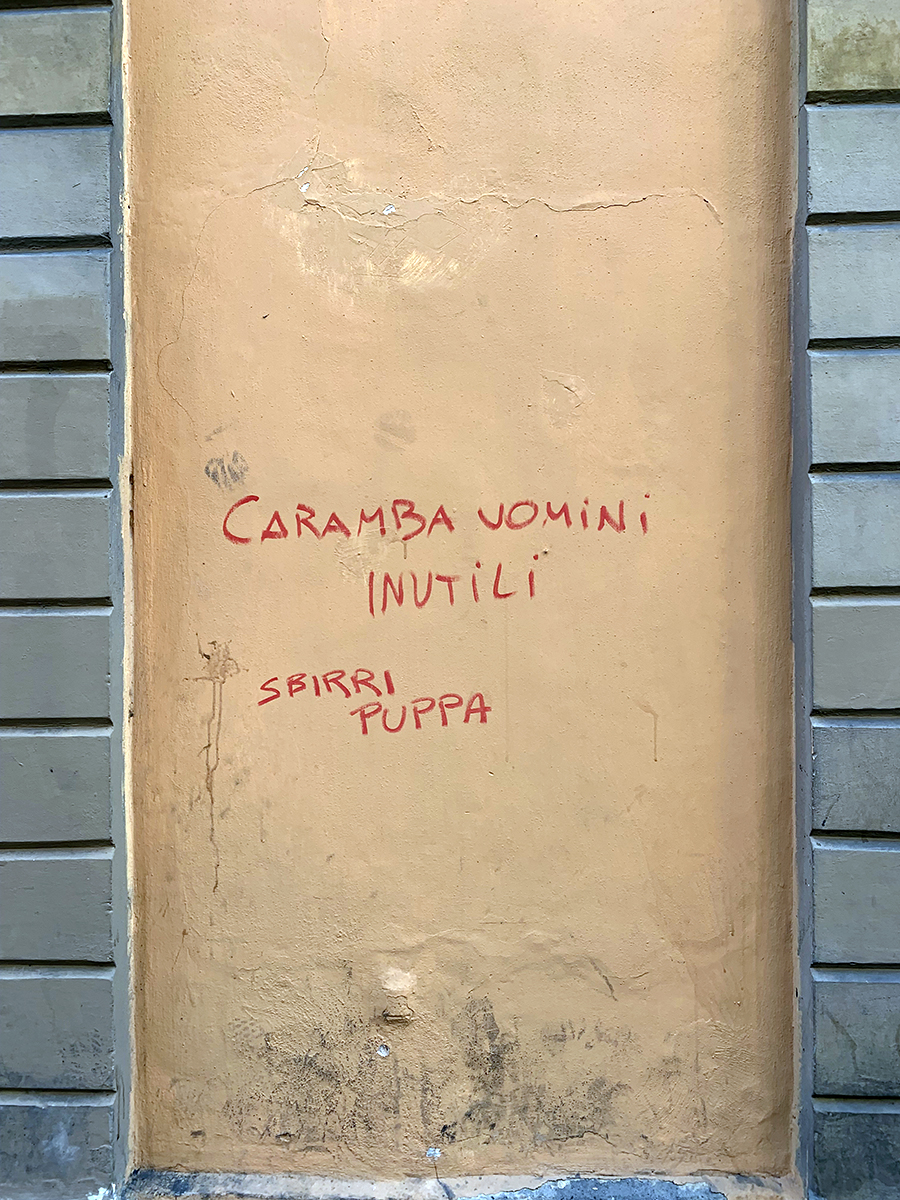 CARAMBA UOMINI
INUTILI
SBIRRI
PUPPA